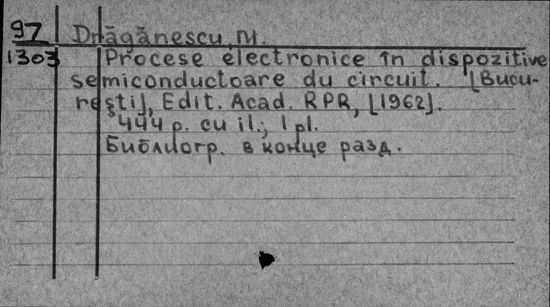 97 Drăgănescu, M.
1303 Procese electronice în dispozitive
semiconductoare du circuit. [Bucu-
rești], Edit. Acad. RPR, [1962].
444 p. cu il.; 1 pl.
Библиогр. в конце разд.